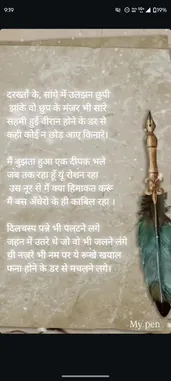 9:39
19%
दरख्तों के, सायें में उलझन छुपी
झांके वो छुप के मंजर भी सारे
सहमी हुई वीरान होने के डर से
कही कोई न छोड़ आए किनारे।
मैं बुझता हुआ एक दीपक भले
जब तक रहा हूँ यूं रोशन रहा
उस नूर से मैं क्या हिमाकत करूं
मैं बस अँधेरो के ही काबिल रहा ।
दिलचस्प पन्ने भी पलटने लगे
जहन में उतरे थे जो वो भी जलने लगे
थी नज़रे भी नम पर ये रूखे खयाल
फना होने के डर से मचलने लगे।
My pen